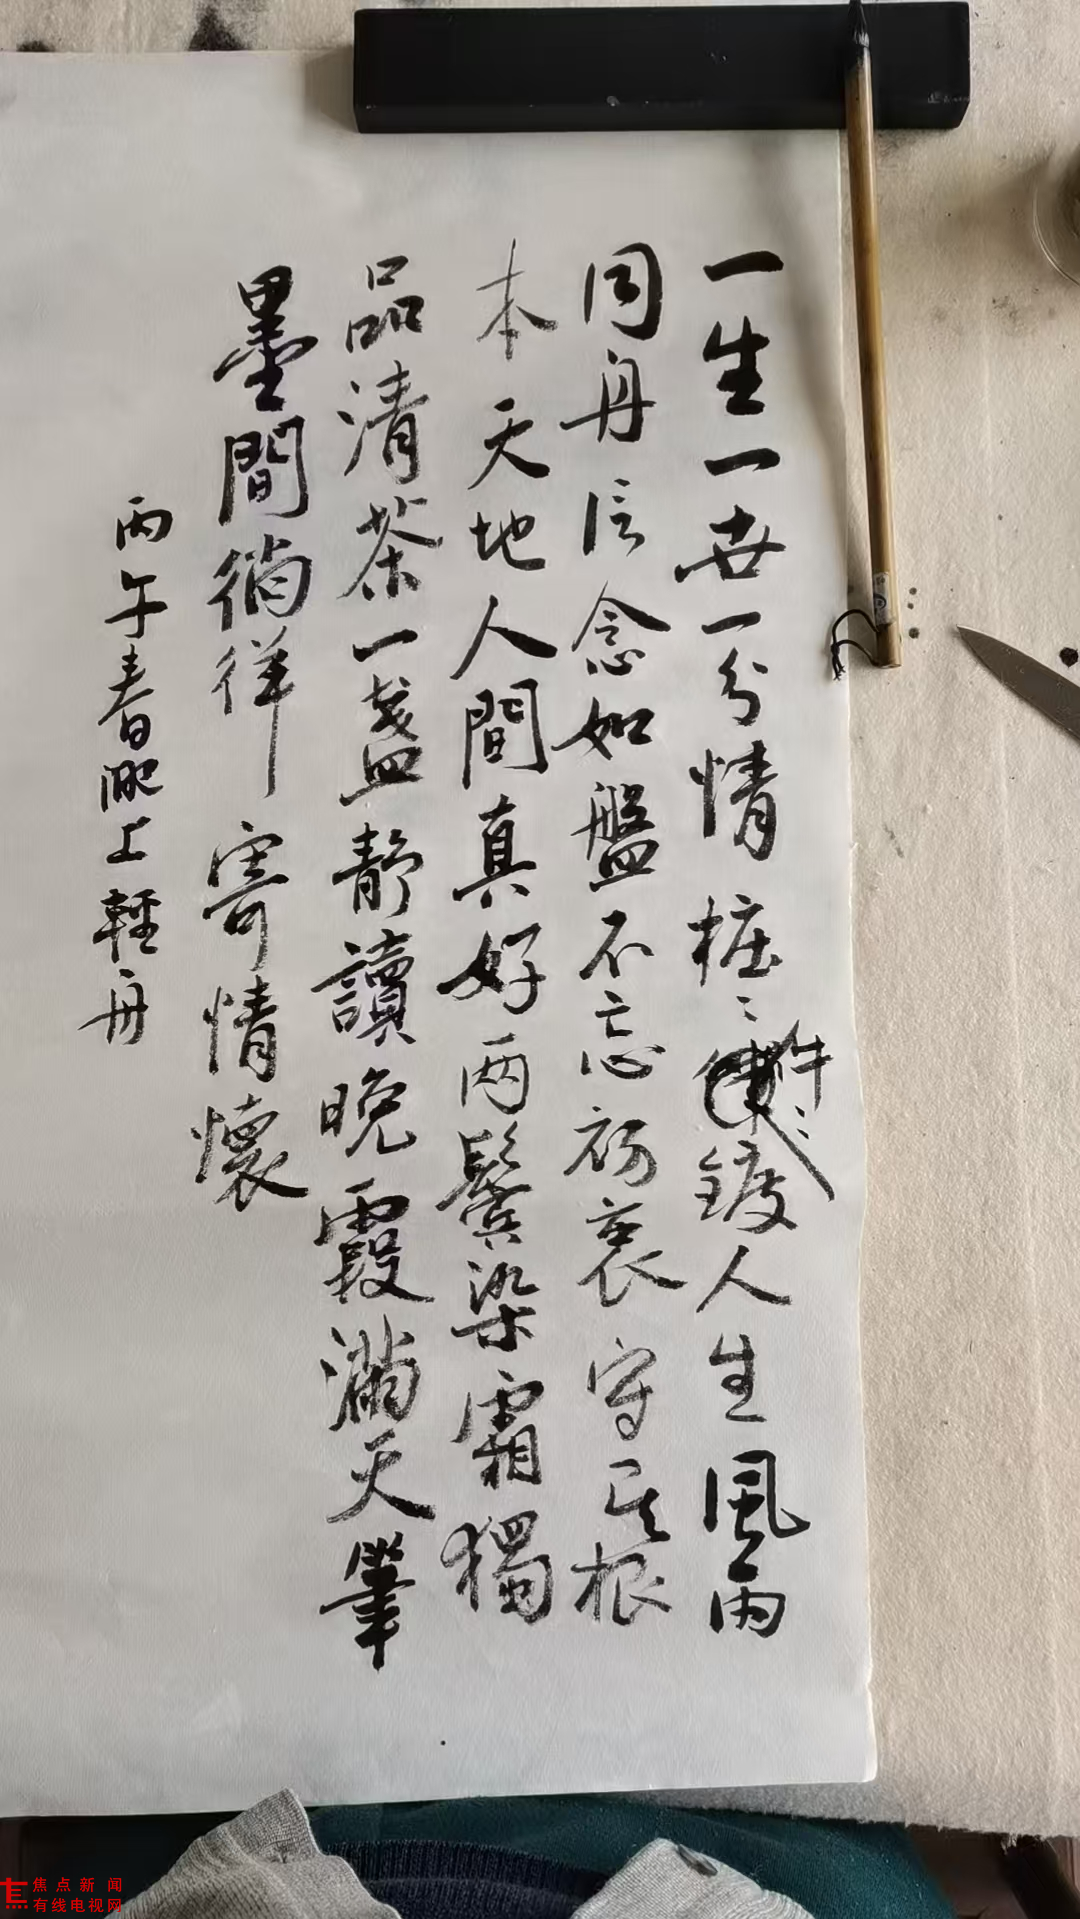 一生一世一分情桩〻件〻鍍人生風雨
同舟信念如磐不忘初衷守其根
本天地人間真好两鬓染霜獨
品清茶一盏静讀晚霞滿天筆
墨間徜徉寄情懷
丙午春淝上輕舟
焦点新闻
有线电视网